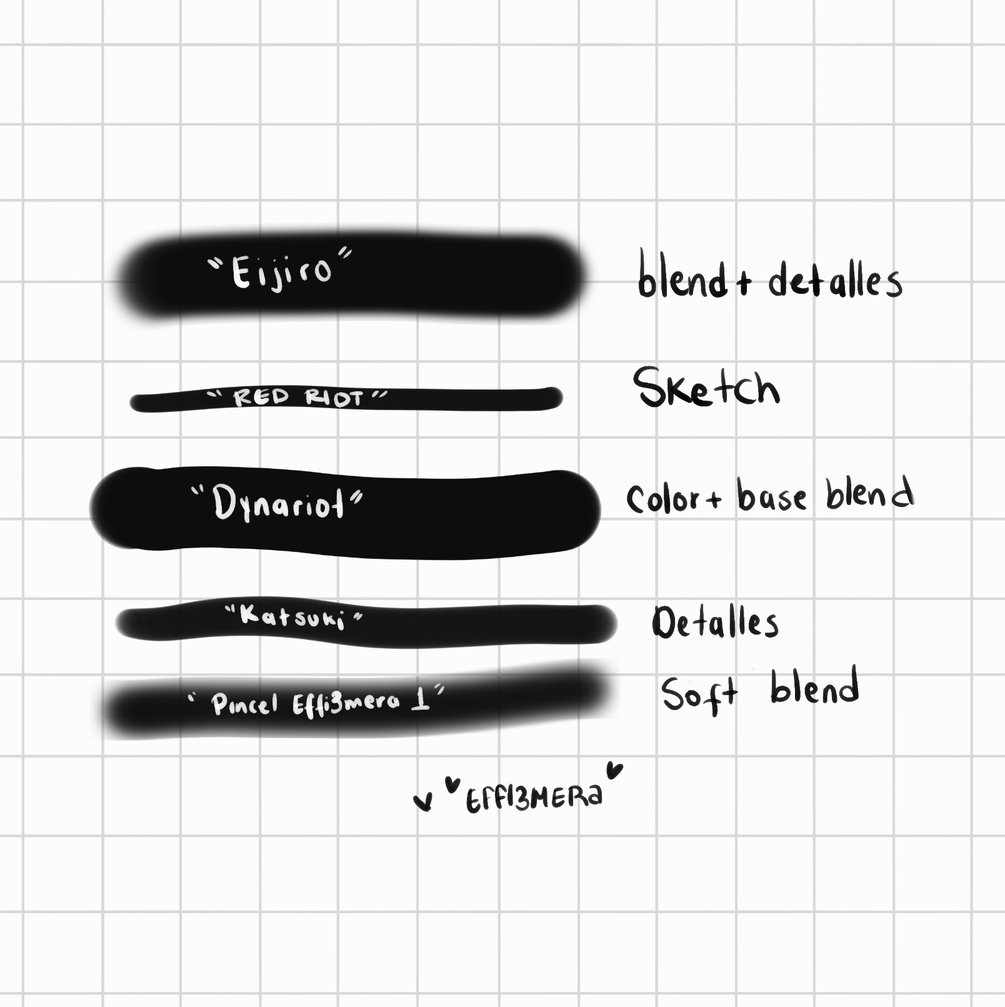 "Eijiro" blend+ detalles
"RED RIOT" Sketch
"Dynariot" Color+ base blend
"Katsuki" Detalles
"Pincel Effi3mera 1" Soft blend
"EFFI3MERa